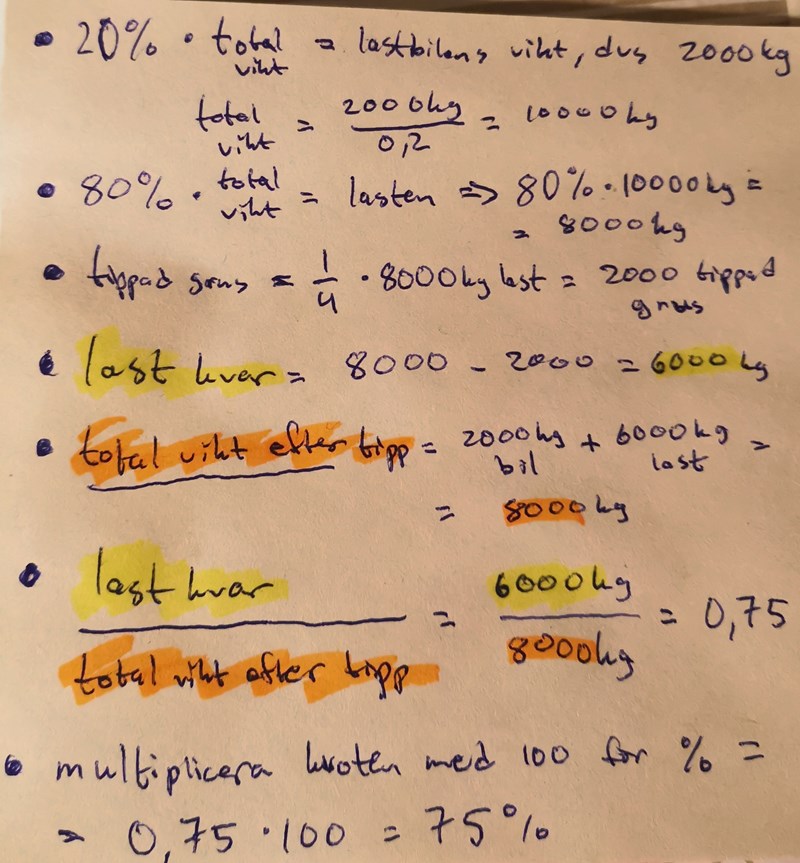 • 20% · total vikt = lastbilens vikt, dvs 2000 kg
total vikt = 2000kg / 0,2 = 10000 kg
• 80% · total vikt = lasten => 80% · 10000kg =
= 8000 kg
• tippad grus = 1/4 · 8000 kg last = 2000 tippad grus
• last kvar = 8000 - 2000 = 6000 kg
• total vikt efter tipp = 2000kg bil + 6000kg last =
= 8000 kg
• last kvar / total vikt efter tipp = 6000kg / 8000kg = 0,75
• multiplicera kvoten med 100 for % =
= 0,75 · 100 = 75%